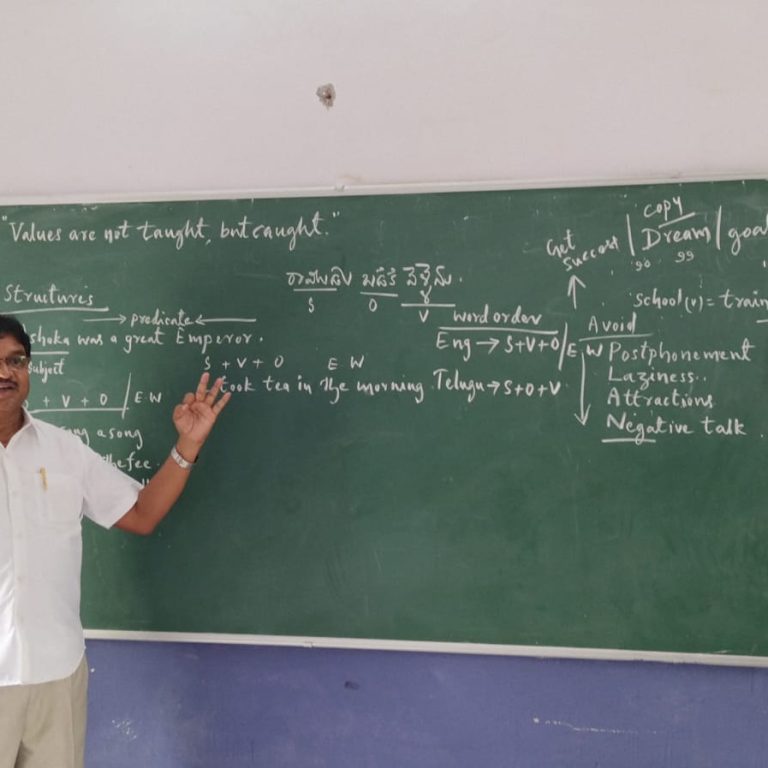 "Values are not taught, but caught."
Structures
→ predicate ←
shoka was a great Emperor.
subject
+ V + O / E.W
ang a song
the fee
S + V + O E W
took tea in the morning
రాముడు బడికి వెళ్ళెను.
S O V
word order
Eng → S+V+O / E W
Telugu → S+O+V
copy
Get success | Dream | goal
school (v) = train
Avoid
Postphonement
Laziness..
Attractions
Negative talk.